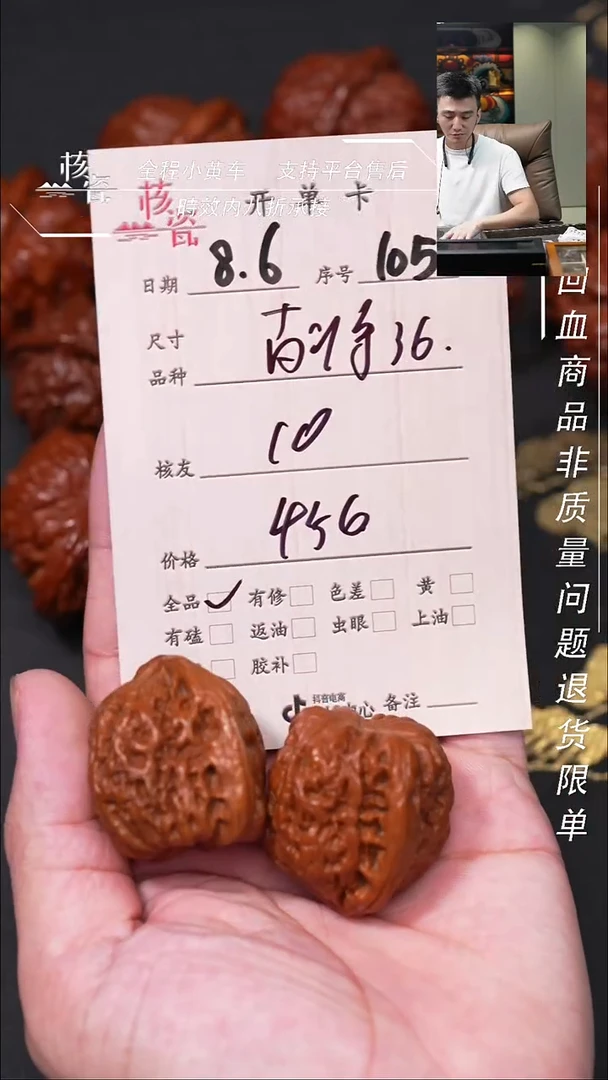 核瓷
全程小黄车 支持平台售后
時效内八折承接
核瓷
开单卡
日期 8.6 序号 105
尺寸
品种 南将 36.
核友 10
价格 456
全品 ✓ 有修 色差 黄
有磕 返油 虫眼 上油
胶补
抖音电商
备注
回血商品非质量问题退货限单